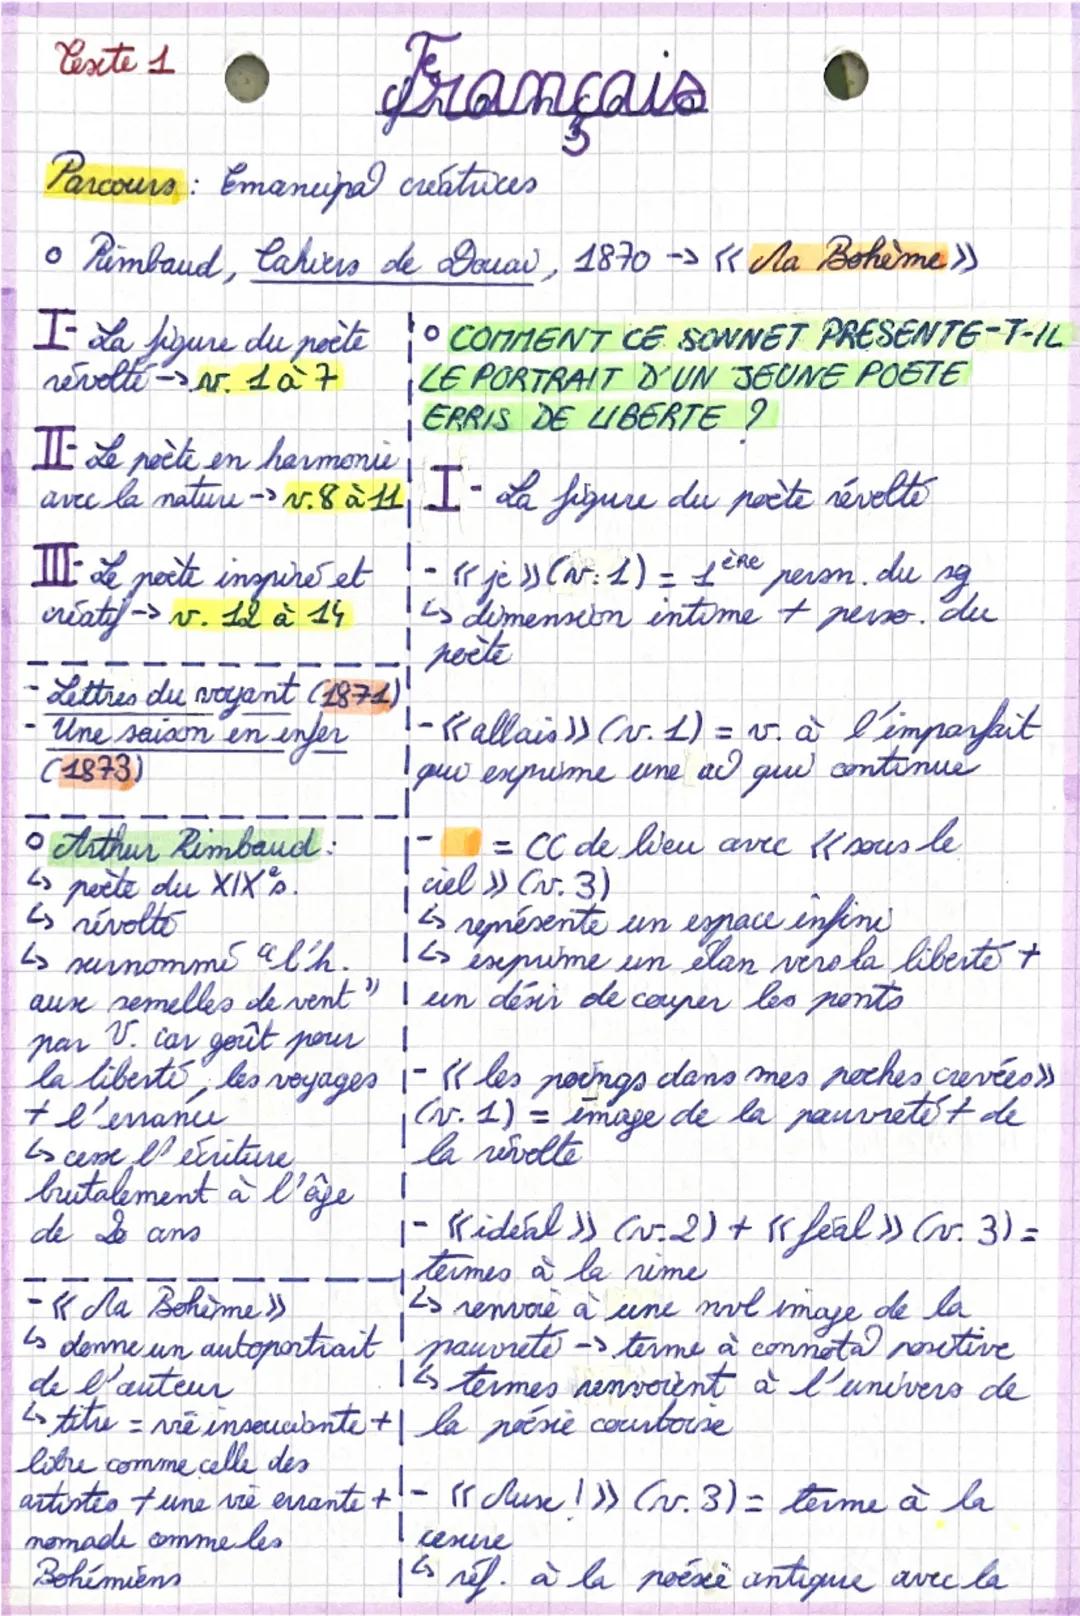 Texte 1
Français
Parcours : Emancipa° créatrices
o Rimbaud, Cahiers de Douai, 1870 -> « Ma Bohème »
I- La figure du poète
révolté -> v. 1 à 7
II- Le poète en harmonie
avec la nature -> v. 8 à 11
III- Le poète inspiré et
créatif -> v. 12 à 14
- Lettres du voyant (1871)
- Une saison en enfer
(1873)
o Arthur Rimbaud :
↳ poète du XIXe s.
↳ révolté
↳ surnommé "l'h.
aux semelles de vent"
par V. car goût pour
la liberté, les voyages
+ l'errance
↳ cesse l'écriture
brutalement à l'âge
de 20 ans
- « Ma Bohème »
↳ donne un autoportrait
de l'auteur
↳ titre = vie insouciante +
libre comme celle des
artistes + une vie errante +
nomade comme les
Bohémiens
o COMMENT CE SONNET PRESENTE-T-IL
LE PORTRAIT D'UN JEUNE POETE
EPRIS DE LIBERTE ?
I- La figure du poète révolté
- « je » (v. 1) = 1ère persn. du sg
↳ dimension intime + perso. du
poète
- « allais » (v. 1) = v. à l'imparfait
qui exprime une ac° qui continue
- = CC de lieu avec « sous le
ciel » (v. 3)
↳ représente un espace infini
↳ exprime un élan vers la liberté +
un désir de couper les ponts
- « les poings dans mes poches crevées »
(v. 1) = image de la pauvreté + de
la révolte
- « idéal » (v. 2) + « féal » (v. 3) =
termes à la rime
↳ renvoie à une nvl image de la
pauvreté -> terme à connota° positive
↳ termes renvoient à l'univers de
la poésie courtoise
- « Muse ! » (v. 3) = terme à la
césure
↳ réf. à la poésie antique avec la